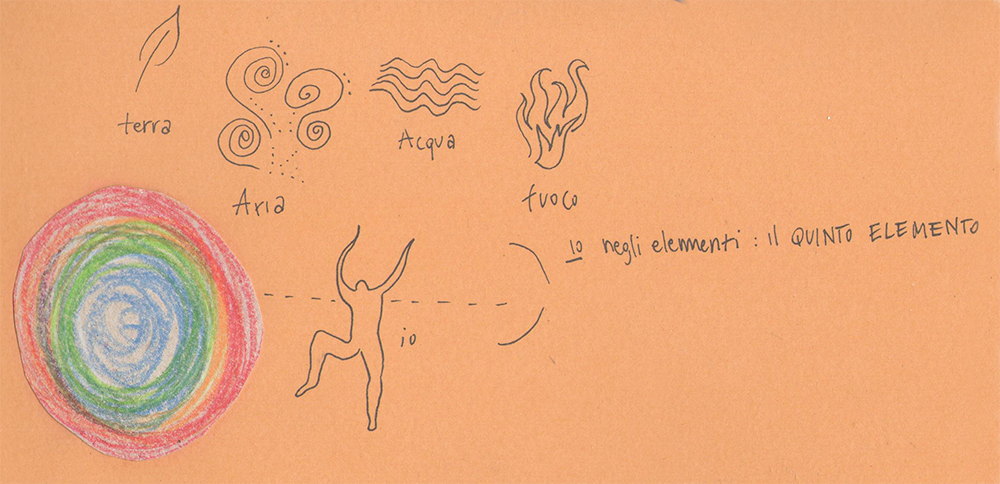 terra
Aria
Acqua
fuoco
io
io negli elementi : il QUINTO ELEMENTO